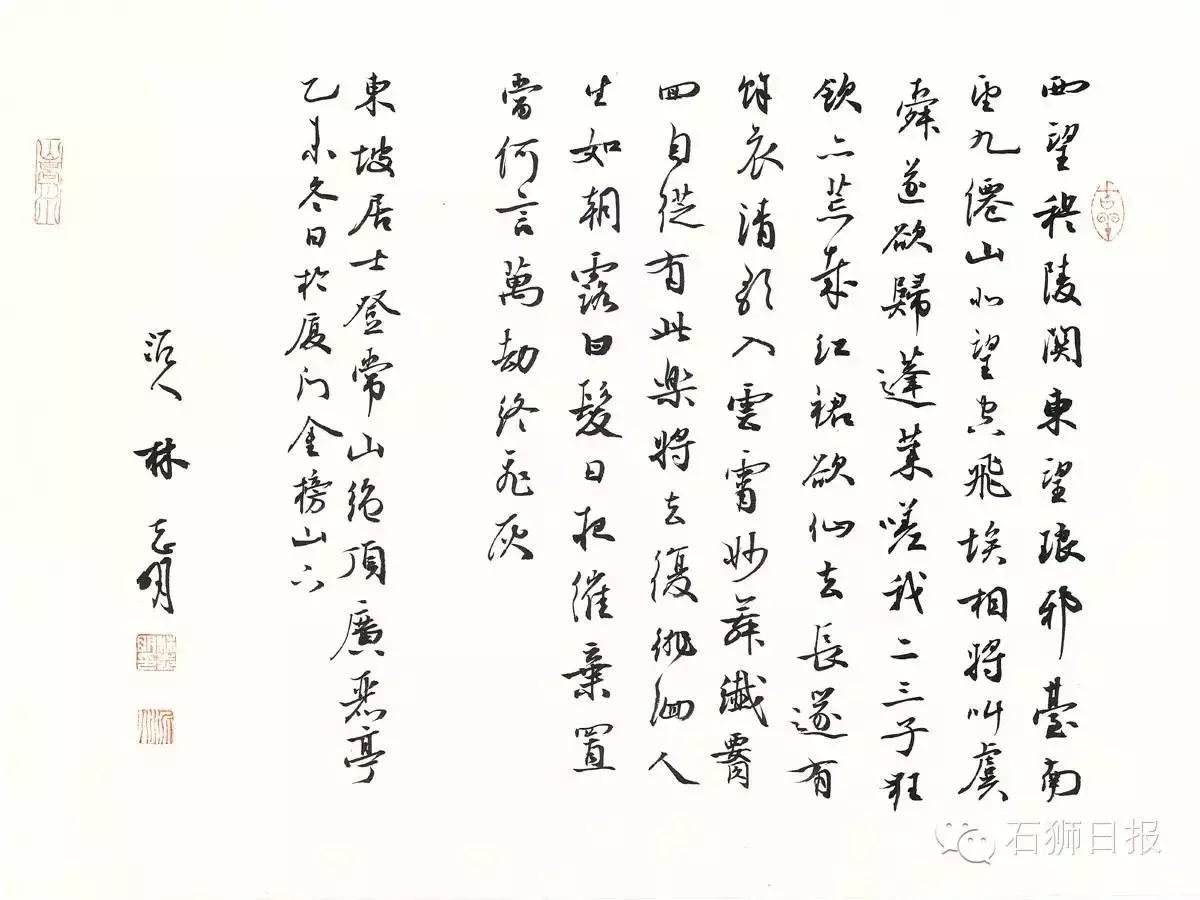 西望穆陵関東望琅邪臺南
望九僊山北望空飛埃相將叫虞
舜遂欲歸蓬萊嗟我二三子狂
飲亦荒哉紅裙欲仙去長篴有
餘哀清歌入雲霄妙舞纖腰
回自從有此樂將去復徘徊人
生如朝露白髮日夜催棄置
當何言萬劫終飛灰
東坡居士登常山絕頂廣麗亭
乙未冬日於厦门金榜山下
沂人 林志明
石狮日报